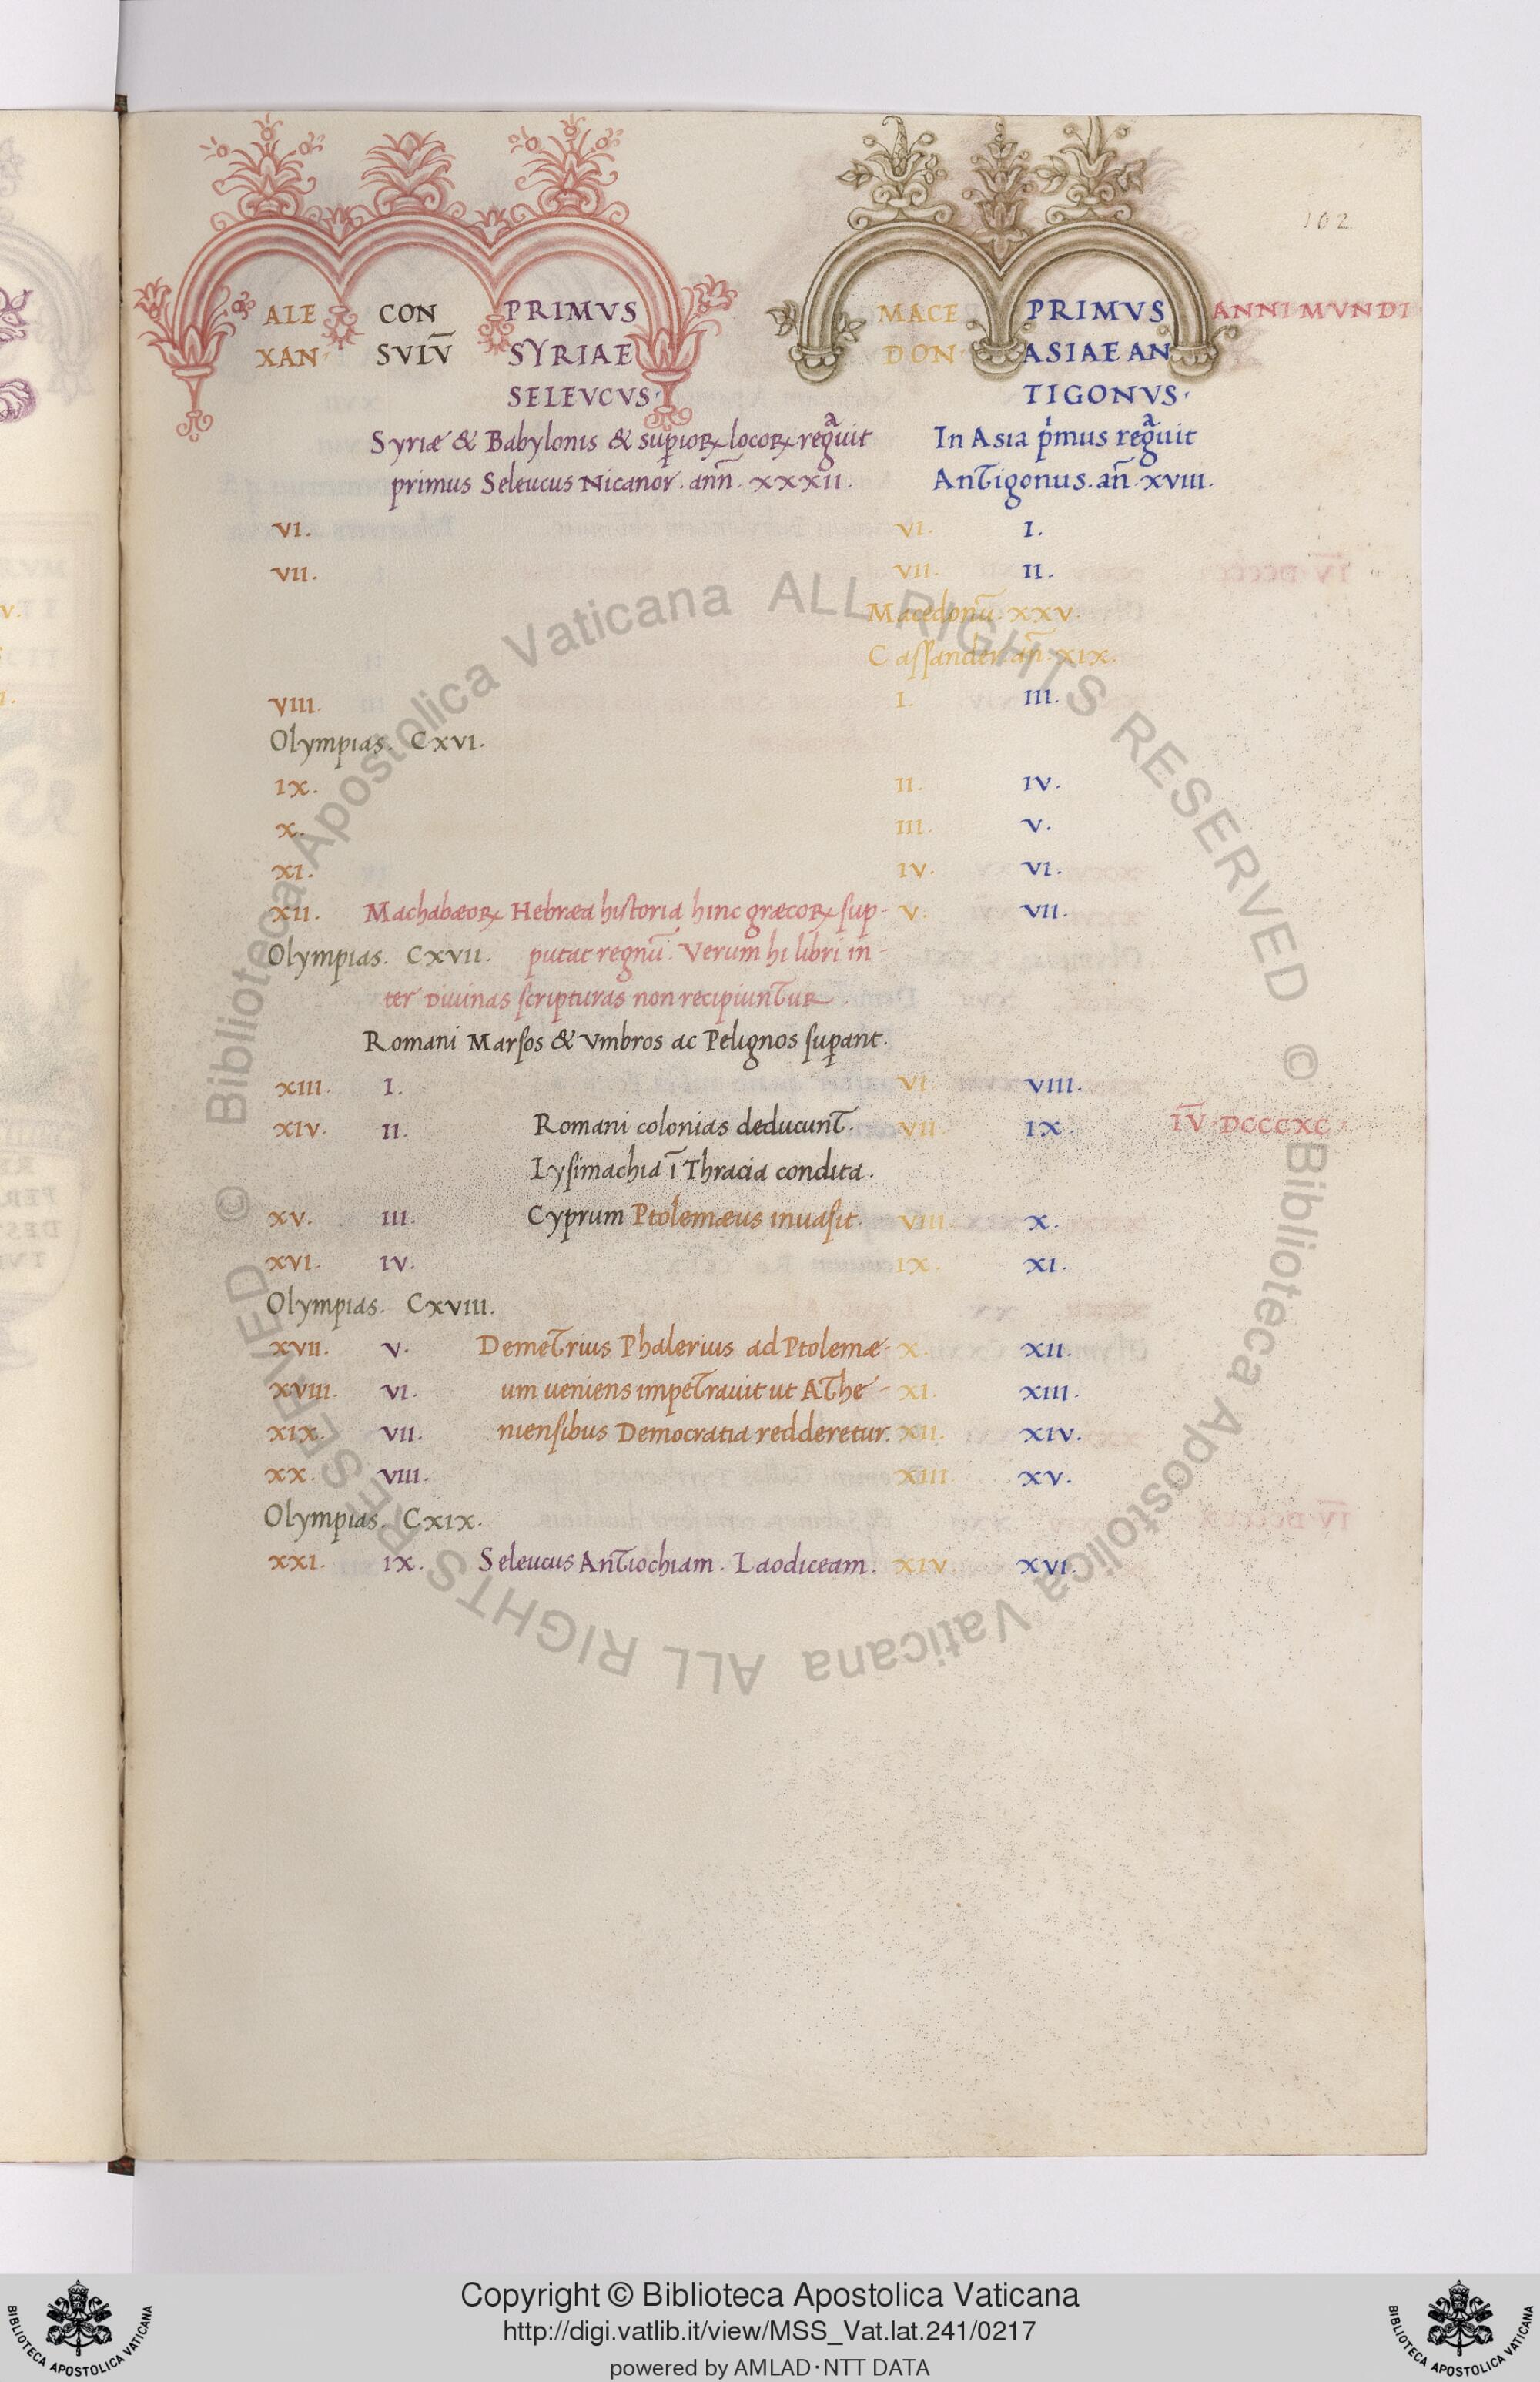 102
ALE CON PRIMVS MACE PRIMVS ANNI MVNDI
XAN· SVLV̄ SYRIAE DON· ASIAE AN
SELEVCVS· TIGONVS·
Syriæ & Babylonis & sup̱ioꝝ locoꝝ regͣuit In Asia pͥmus regͣuit
primus Seleucus Nicanor. ann̄. XXXII. Antigonus. an̄. XVIII.
VI. VI. I.
VII. VII. II.
Macedonū. XXV.
Cassander. an̄. XIX.
VIII. I. III.
Olympias. CXVI.
IX. II. IV.
X. III. V.
XI. IV. VI.
XII. Machabæoꝝ Hebræa historia hinc græcoꝝ sup- V. VII.
Olympias. CXVII. putat regnū. Verum hi libri in-
ter Diuinas scripturas non recipiuntur.
Romani Marsos & Vmbros ac Pelignos sup̱ant.
XIII. I. VI. VIII.
XIV. II. Romani colonias deducunt. VII. IX. I̅V̅·DCCCXC·
Lysimachia ī Thracia condita.
XV. III. Cyprum Ptolemæus inuasit. VIII. X.
XVI. IV. IX. XI.
Olympias. CXVIII.
XVII. V. Demetrius Phalerius ad Ptolemæ- X. XII.
XVIII. VI. um ueniens impetrauit ut Athe- XI. XIII.
XIX. VII. niensibus Democratia redderetur. XII. XIV.
XX. VIII. XIII. XV.
Olympias. CXIX.
XXI. IX. Seleucus Antiochiam. Laodiceam. XIV. XVI.
© Biblioteca Apostolica Vaticana ALL RIGHTS RESERVED © Biblioteca Apostolica Vaticana ALL RIGHTS RESERVED
Copyright © Biblioteca Apostolica Vaticana
http://digi.vatlib.it/view/MSS_Vat.lat.241/0217
powered by AMLAD·NTT DATA
BIBLIOTECA APOSTOLICA VATICANA
BIBLIOTECA APOSTOLICA VATICANA